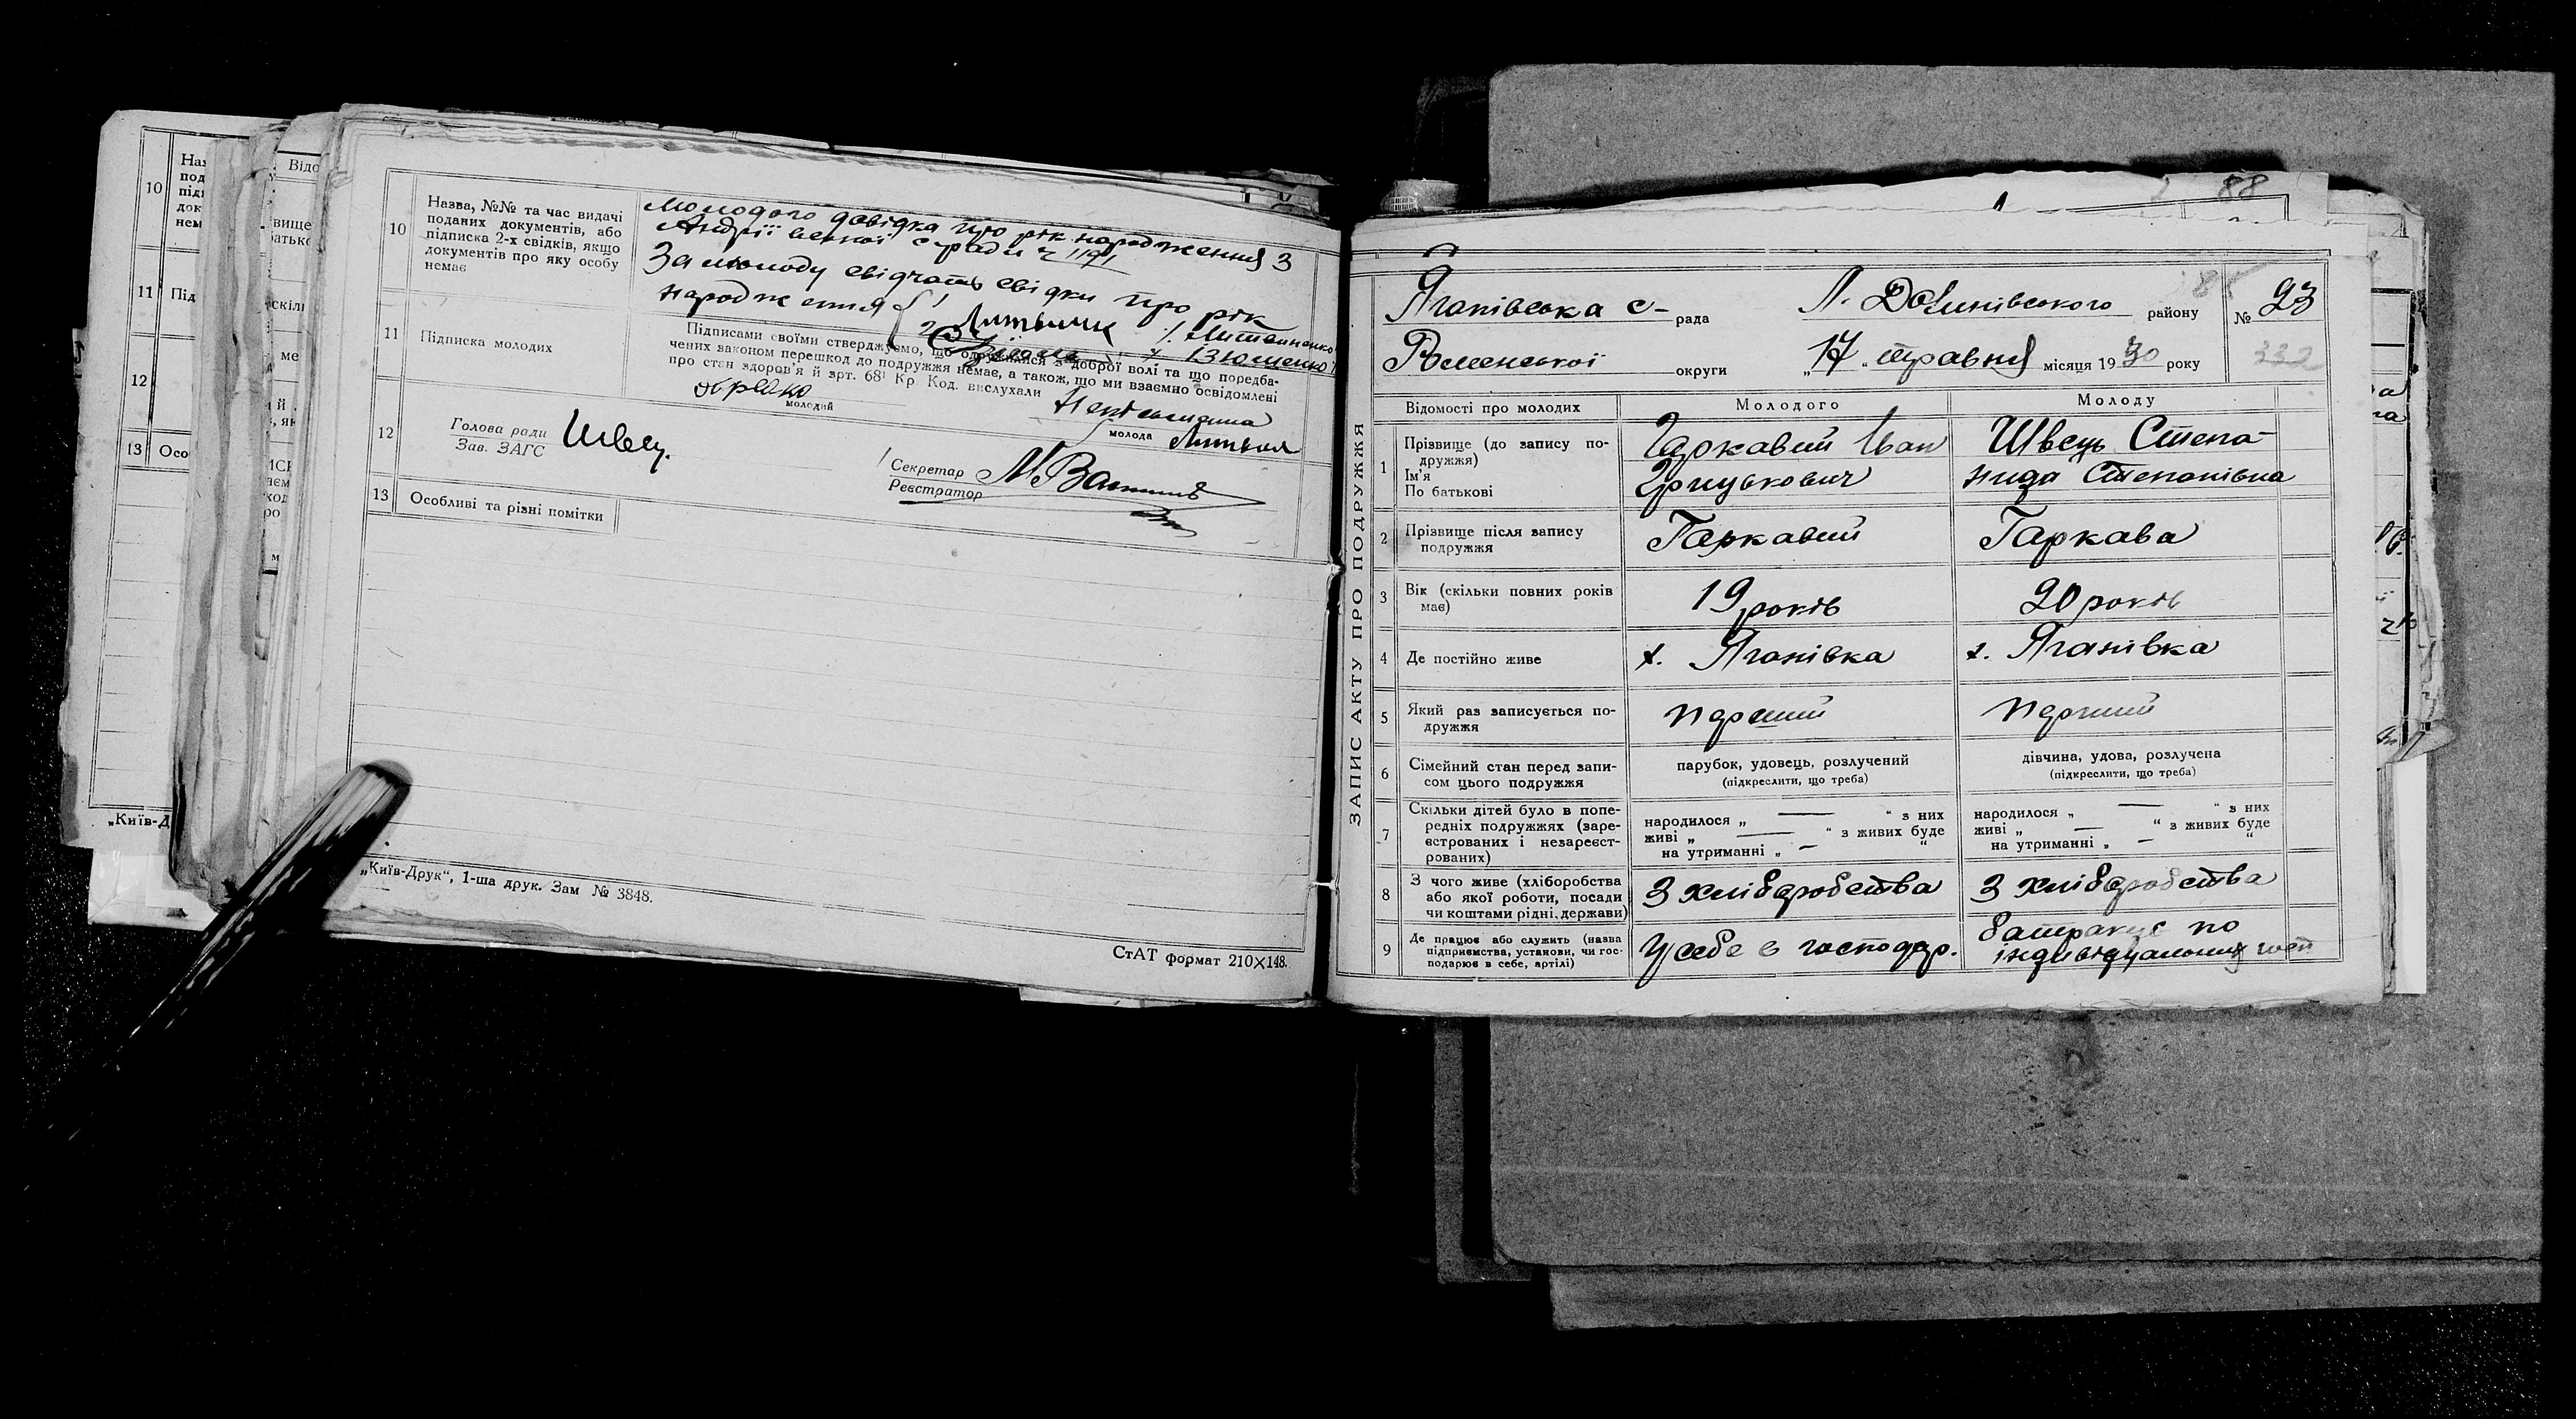 10
Назва, №№ та час видачі
поданих документів, або
підписка 2-х свідків, якщо
документів про яку особу
немає
Молодого довідка про рік народження з
Андріївської с ради ч 1191
За молоду свідчать свідки про рік
народження
11
Підписка молодих
Підписами своїми стверджуємо, що одружилися з доброї волі та що передба-
чених законом перешкод до подружжя немає, а також, що ми взаємно освідомлені
про стан здоров'я й арт. 68¹ Кр Код. вислухали
молодий
молода
12
Голова ради
Зав. ЗАГС
Швец
Секретар
Реєстратор
13
Особливі та різні помітки
„Київ-Друк“, 1-ша друк. Зам № 3848.
СтАТ формат 210×148.
10
11 Під
12
13 Осо
„Київ-Д
88
ЗАПИС АКТУ ПРО ПОДРУЖЖЯ
Яганівська с- рада
району
№ 23
Роменської округи
„17“ травня місяця 1930 року
232
Відомості про молодих
Молодого
Молоду
1
Прізвище (до запису по-
дружжя)
Ім'я
По батькові
Гаркавий Іван
Грицькович
Швець Степа-
нида Степанівна
2
Прізвище після запису
подружжя
Гаркавий
Гаркава
3
Вік (скільки повних років
має)
19 років
20 років
4
Де постійно живе
х. Яганівка
х. Яганівка
5
Який раз записується по-
дружжя
перший
перший
6
Сімейний стан перед запи-
сом цього подружжя
парубок, удовець, розлучений
(підкреслити, що треба)
дівчина, удова, розлучена
(підкреслити, що треба)
7
Скільки дітей було в попе-
редніх подружжях (заре-
єстрованих і незареєст-
рованих)
народилося „ — “ з них
живі „ — “ з живих буде
на утриманні „ — “
народилося „ — “ з них
живі „ — “ з живих буде
на утриманні „ — “
8
З чого живе (хліборобства
або якої роботи, посади
чи коштами рідні, держави)
З хліборобства
З хліборобства
9
Де працює або служить (назва
підприємства, установи, чи гос-
подарює в себе, артілі)
У себе в господар.
батракує по
індивідуальних госп